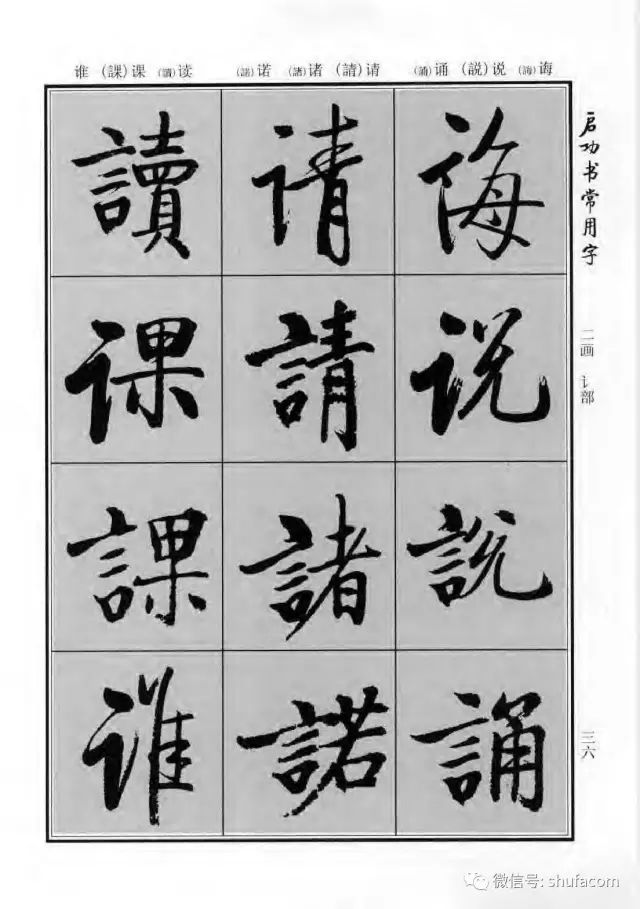 谁 (課)课 (讀)读 (諾)诺 (諸)诸 (請)请 (誦)诵 (説)说 (誨)诲
启功书常用字
二画 讠部
三六
诲
说
説
誦
请
請
諸
諾
讀
课
課
谁
微信号: shufacom